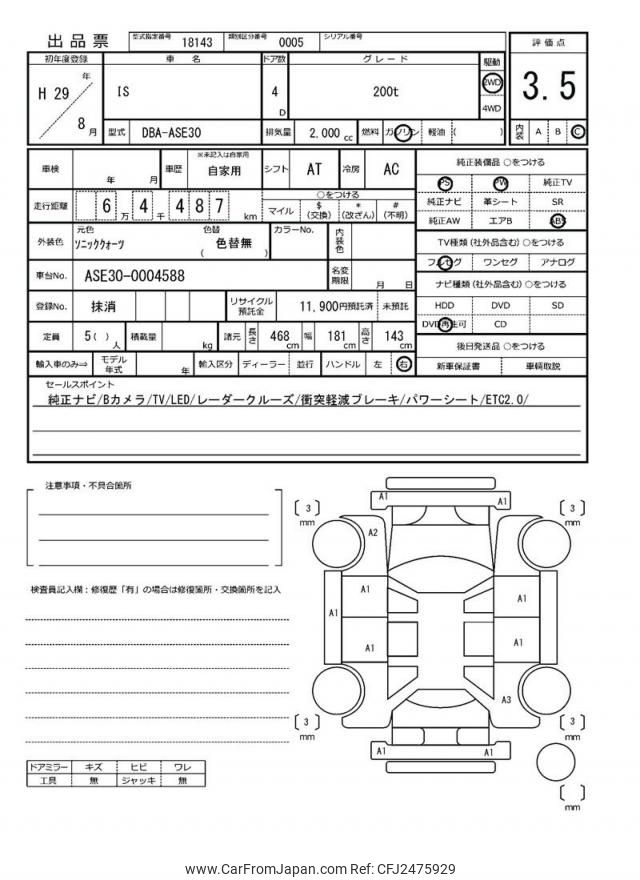 出品票
型式指定番号 18143 類別区分番号 0005 シリアル番号
初年度登録 車名 ドア数 グレード 駆動 評価点
H 29 年 8 月 IS 4 D 200t 2WD 4WD 3.5
型式 DBA-ASE30 排気量 2,000 cc 燃料 ガソリン 軽油 ( ) 内装 A B C
車検 年 月 車歴 ※未記入は自家用 自家用 シフト AT 冷房 AC
走行距離 6 万 4 千 4 8 7 km ○をつける マイル $ (交換) * (改ざん) # (不明)
外装色 元色 ソニッククォーツ 色替 色替無 ( ) カラーNo. 内装色
車台No. ASE30-0004588 名変期限 月 日
登録No. 抹消 リサイクル預託金 11,900円預託済 未預託
定員 5 ( ) 人 積載量 kg 諸元 長さ 468 cm 幅 181 cm 高さ 143 cm
輸入車のみ⇒ モデル年式 年 輸入区分 ディーラー 並行 ハンドル 左 右
純正装備品 ○をつける
PS PW 純正TV
純正ナビ 革シート SR
純正AW エアB ABS
TV種類 (社外品含む) ○をつける
フルセグ ワンセグ アナログ
ナビ種類 (社外品含む) ○をつける
HDD DVD SD
DVD再生可 CD
後日発送品 ○をつける
新車保証書 車輌取説
セールスポイント
純正ナビ/Bカメラ/TV/LED/レーダークルーズ/衝突軽減ブレーキ/パワーシート/ETC2.0/
注意事項・不具合箇所
検査員記入欄：修復歴「有」の場合は修復箇所・交換箇所を記入
ドアミラー キズ ヒビ ワレ
工具 無 ジャッキ 無
A1 A1
3 mm 3 mm
A2
A1 A1
A1 A1
A1 A1
A3
3 mm 3 mm
A1 A1
mm
www.CarFromJapan.com Ref: CFJ2475929